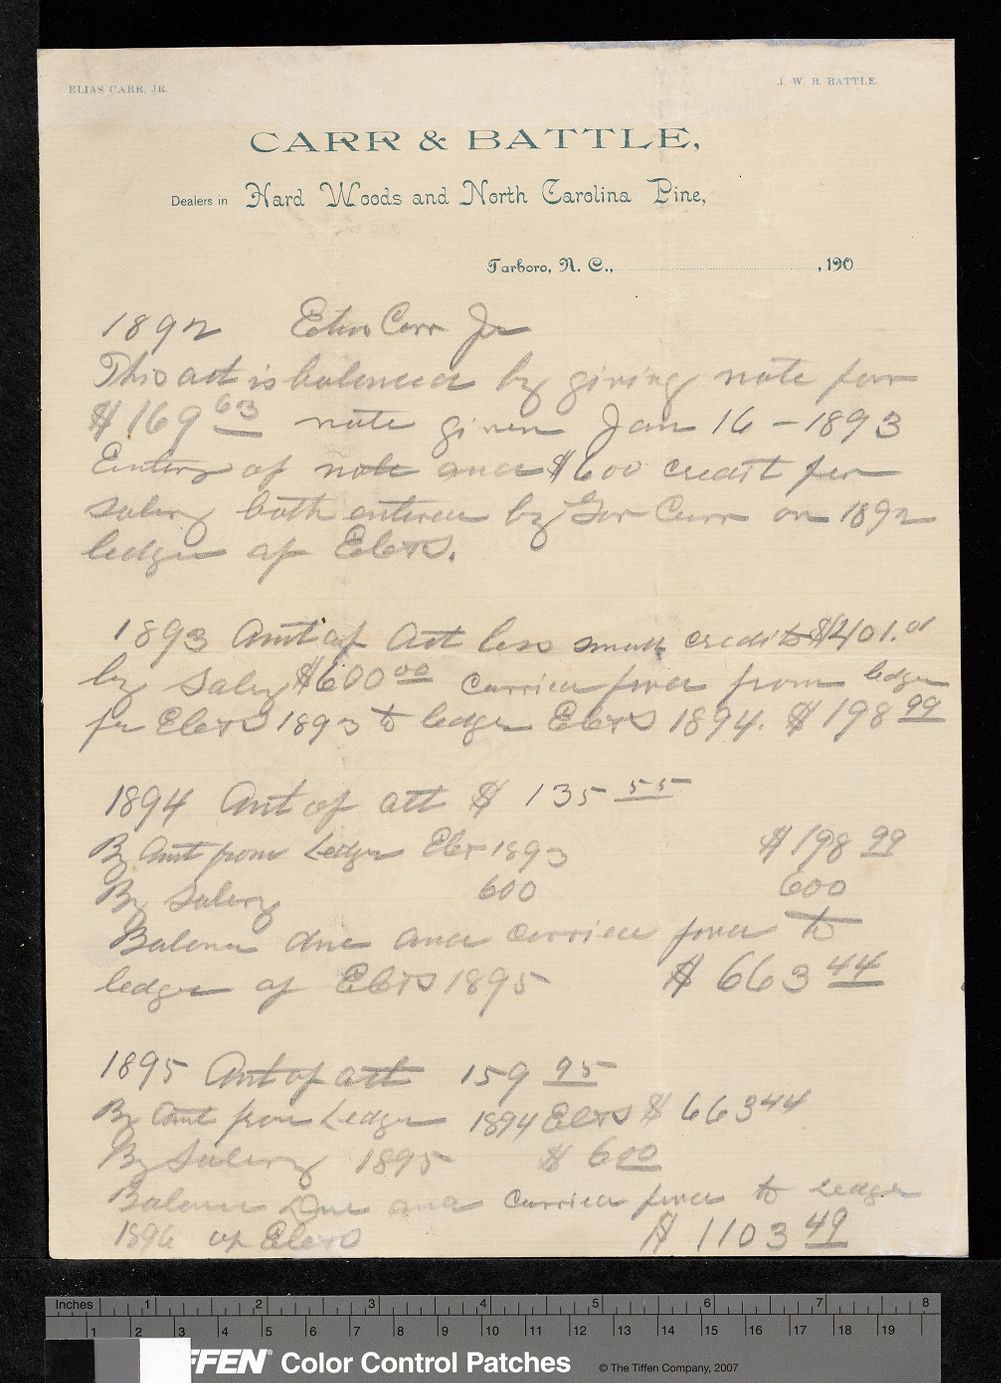 ELIAS CARR, JR.
J. W. B. BATTLE.
CARR & BATTLE,
Dealers in Hard Woods and North Carolina Pine,
Tarboro, N. C., , 190
1892 Elias Carr Jr
This act is balanced by giving note for
$169 63 note given Jan 16 - 1893
Entry of note and $600 credit for
salery both entered by Gov Carr on 1892
ledger of
1893 Amt of Act less small credits $401.01
by Salery $600 00 carried forward from ledger
for 1893 to ledger 1894. $198 99
1894 Amt of att $ 135 55
By Amt from Ledger 1893 $198 99
By Salery 600 600
Balance due and carried forward to
ledger of 1895 $ 663 44
1895 Amt of att 159 95
By Amt from Ledger 1894 $ 663 44
By Salery 1895 $ 600
Balance Due and carried forward to Ledger
1896 of $ 1103 49
Inches 1 2 3 4 5 6 7 8
1 2 3 4 5 6 7 8 9 10 11 12 13 14 15 16 17 18 19
FFEN® Color Control Patches © The Tiffen Company, 2007